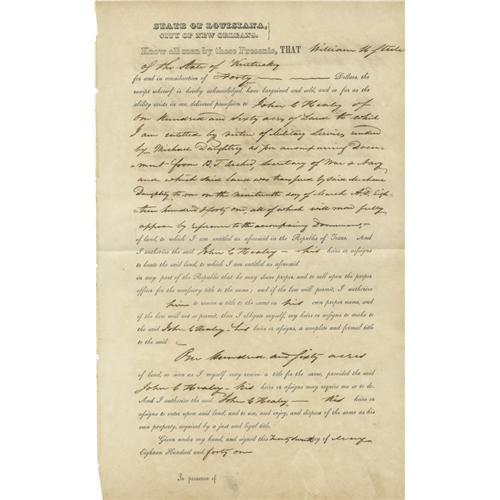 STATE OF LOUISIANA,
CITY OF NEW ORLEANS.
Know all men by these Presents, THAT William H Steele
of the State of Kentucky
for and in consideration of Forty Dollars, the
receipt whereof is hereby acknowledged, have bargained and sold, and so far as the
ability exists in me, delivered possession to John C Healey of
One Hundred and Sixty acres of Land to which
I am entitled by virtue of Military Services
by Michael Daughtery as per accompanying Docu-
ment from B. T. Archer, Secretary of War & Navy
and which said Land was transferred by said Michael
Daughtery to me on the nineteenth day of March A.D. Eigh-
teen hundred & forty one, all of which will more fully
appear by reference to the accompanying Documents,
of land, to which I am entitled as aforesaid in the Republic of Texas. And
I authorise the said John C Healey his heirs or assigns
to locate the said land, to which I am entitled as aforesaid
in any part of the Republic that he may deem proper, and to call upon the proper
officer for the necessary title to the same; and if the law will permit, I authorise
him to receive a title to the same in his own proper name, and
if the law will not so permit, then I obligate myself, my heirs or assigns to make to
the said John C Healey his heirs or assigns, a complete and formal title
to the said
One Hundred and sixty acres
of land, so soon as I myself may receive a title for the same, provided the said
John C Healey his heirs or assigns may require me so to do.
And I authorise the said John C Healey his heirs or
assigns to enter upon said land, and to use, and enjoy, and dispose of the same as his
own property, acquired by a just and legal title.
Given under my hand, and signed this day of May
Eighteen Hundred and forty one
In presence of